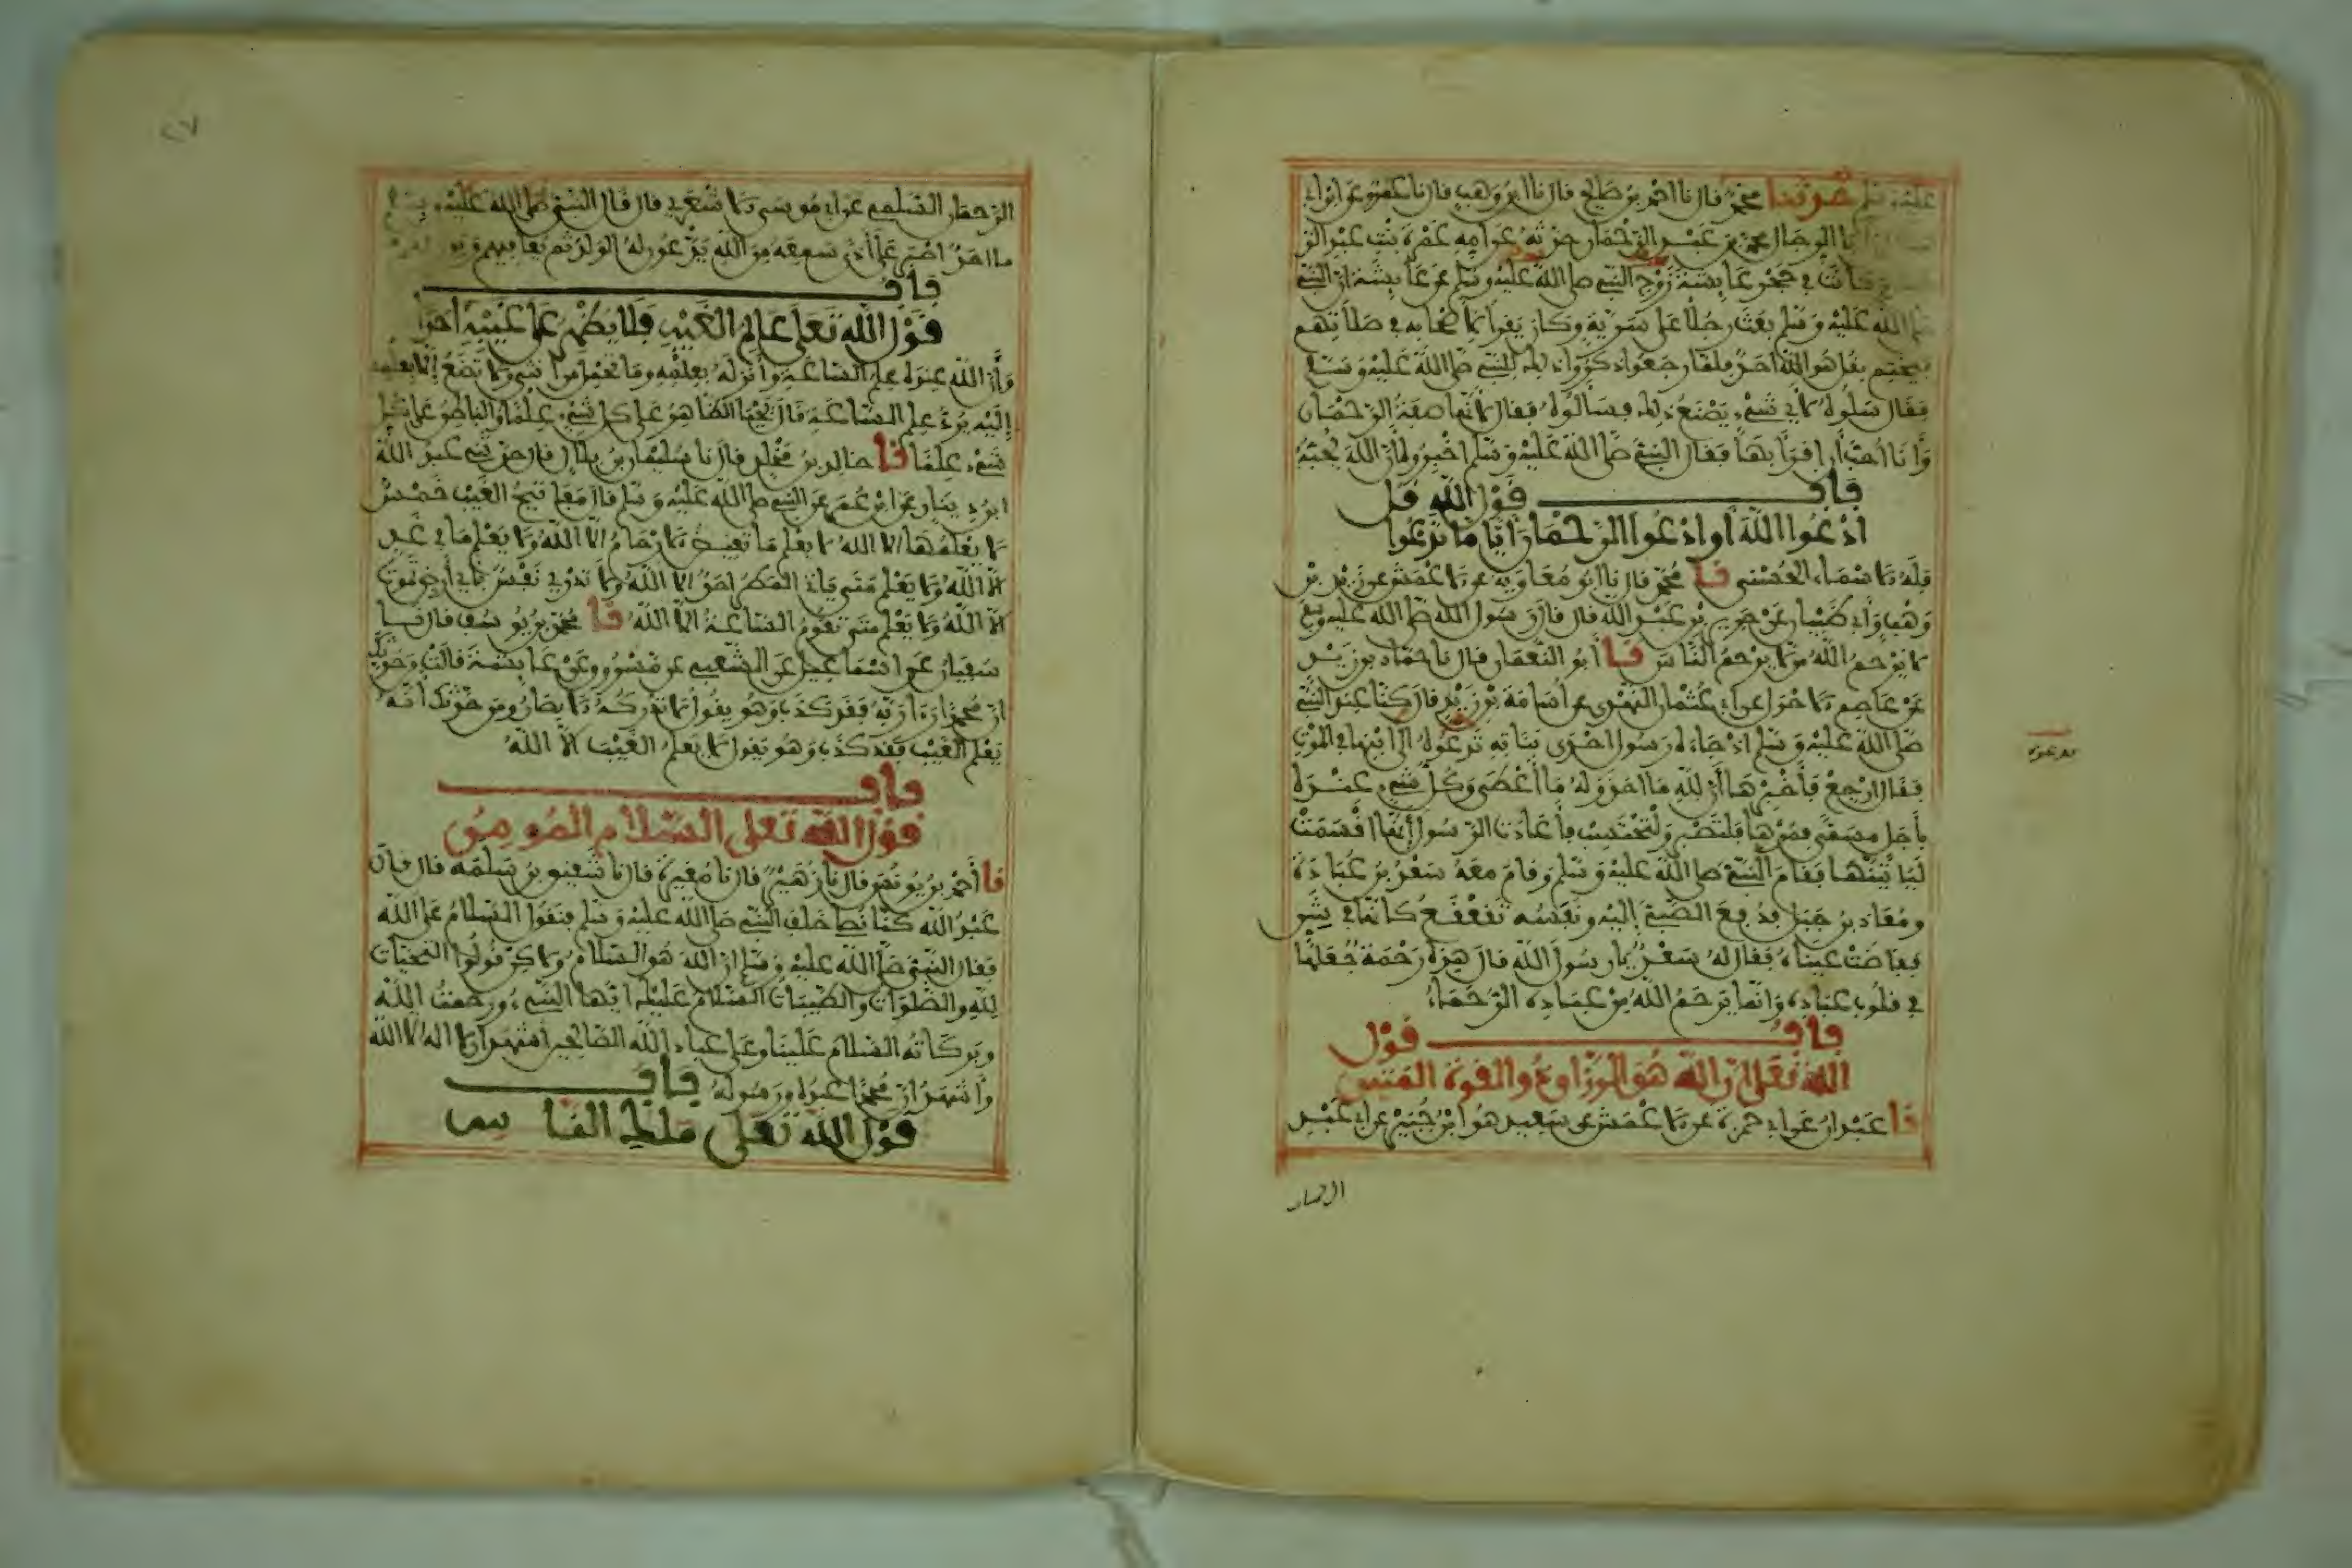 عليه وسلم حدثنا محمد قال نا احمد بن صالح قال نا ابن وهب قال نا عمرو عن ابن ابي
ان ابا الرجال محمد بن عبد الرحمان حدثه عن امه عمرة بنت عبد الرحمن
وكانت في حجر عايشة زوج النبي صلى الله عليه وسلم عن عايشة ان النبي
صلى الله عليه وسلم بعث رجلا على سرية وكان يقرأ لاصحابه في صلاتهم
فيختم بقل هو الله احد فلما رجعوا ذكروا ذلك للنبي صلى الله عليه وسلم
فقال سلوه لاي شيء يصنع ذلك فسالوه فقال لانها صفة الرحمان
وانا احب ان اقرأ بها فقال النبي صلى الله عليه وسلم اخبروه ان الله يحبه
باب قول الله قل
ادعوا الله او ادعوا الرحمان ايا ما تدعوا
فله الاسماء الحسنى نا محمد قال نا ابو معاوية عن الاعمش عن زيد بن
وهب وابي ظبيان عن جرير بن عبد الله قال قال رسول الله صلى الله عليه وسلم
لا يرحم الله من لا يرحم الناس نا ابو النعمان قال نا حماد بن زيد
عن عاصم الاحول عن ابي عثمان النهدي عن اسامة بن زيد قال كنا عند النبي
صلى الله عليه وسلم اذ جاءه رسول احدى بناته تدعوه الى ابنها في الموت
فقال ارجع فأخبرها أن لله ما اخذ وله ما أعطى وكل شيء عنده
بأجل مسمى فمرها فلتصبر ولتحتسب فأعادت الرسول أنها اقسمت
ليأتينها فقام النبي صلى الله عليه وسلم وقام معه سعد بن عبادة
ومعاذ بن جبل فدفع الصبي إليه ونفسه تقعقع كانها في شن
ففاضت عيناه فقال له سعد يا رسول الله قال هذه رحمة جعلها
في قلوب عباده وانما يرحم الله من عباده الرحماء
باب قول
الله تعلى ان الله هو الرزاق ذو القوة المتين
نا عبدان عن ابي حمزة عن الاعمش عن سعيد هو ابن جبير عن ابي عبد
الرحمان
الرحمان السلمي عن ابي موسى الاشعري قال قال النبي صلى الله عليه وسلم
ما احد اصبر على أذى سمعه من الله يدعون له الولد ثم يعافيهم ويرزقهم
باب
قول الله تعلى عالم الغيب فلا يظهر على غيبه احدا
وأن الله عنده علم الساعة وأنزله بعلمه وما تحمل من انثى ولا تضع إلا بعلمه
إليه يرد علم الساعة قال يحيى الظاهر على كل شيء علما والباطن على كل
شيء علما نا خالد بن مخلد قال نا سليمان بن بلال قال حدثني عبد الله
ابن دينار عن ابن عمر عن النبي صلى الله عليه وسلم قال مفاتيح الغيب خمس
لا يعلمها الا الله لا يعلم ما تغيض الارحام الا الله ولا يعلم ما في غد
الا الله ولا يعلم متى يات المطر احد الا الله ولا تدري نفس بأي أرض تموت
الا الله ولا يعلم متى تقوم الساعة الا الله نا محمد بن يوسف قال نا
سفيان عن اسماعيل عن الشعبي عن مسروق عن عايشة قالت من حدثك
ان محمدا راى ربه فقد كذب وهو يقول لا تدركه الابصار ومن حدثك انه
يعلم الغيب فقد كذب وهو يقول لا يعلم الغيب الا الله
باب
قول الله تعلى السلام المومن
نا أحمد بن يونس قال نا زهير قال نا مغيرة قال نا شقيق بن سلمه قال قال
عبد الله كنا نصلي خلف النبي صلى الله عليه وسلم فنقول السلام على الله
فقال النبي صلى الله عليه وسلم ان الله هو السلام ولاكن قولوا التحيات
لله والصلوات والطيبات السلام عليك ايها النبي ورحمت الله
وبركاته السلام علينا وعلى عباد الله الصالحين اشهد ان لا اله الا الله
وأشهد ان محمدا عبده ورسوله باب
قول الله تعلى ملك الناس